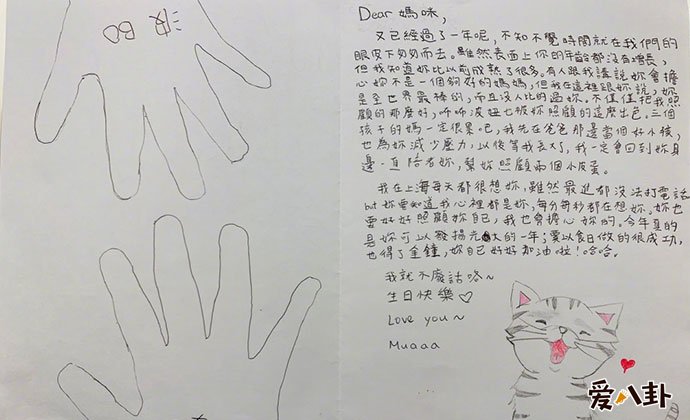 Dear 媽咪,
又已經過了一年呢,不知不覺時間就在我們的
眼皮下匆匆而去。雖然表面上你的年齡都沒有增長,
但我知道妳比以前成熟了很多。有人跟我講說妳會擔
心妳不是一個夠好的媽媽,但我在這裡跟妳說,妳
是全世界最棒的,而且沒人比的過妳。不僅僅把我照
顧的那麼好,咘咘波妞也被妳照顧的這麼出色,三個
孩子的媽一定很累吧,我先在爸爸那邊當個好小孩,
也為妳減少壓力,以後等我長大了,我一定會回到妳身
邊一直陪著妳,幫妳照顧兩個小皮蛋。
我在上海每天都很想妳,雖然最近都沒法打電話
but 妳要知道我心裡都是妳,每分每秒都在想妳。妳也
要好好照顧妳自己,我也會擔心妳的。今年真的
是妳可以發揚光大的一年;愛以食日做的很成功,
也得了金鐘,妳自己好好加油啦!哈哈。
我就不廢話咯~
生日快樂♡
Love you~
Muaaa
爱八卦